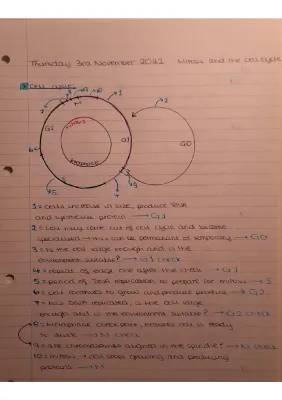 Thursday 3rd November 2022 Mitosis and the cell cycle
Cell cycle:
7 8 9 10 1 2
M
G2 G1 G0
6
5 S 4 3
1 = cells increase in size, produce RNA
and synthesise protein → G1
2 = cell may come out of cell cycle and become
specialised → this can be permanent or temporary → G0
3 = is the cell large enough and is the
environment suitable? → G1 check
4 = repeat of stage one after the check → G1
5 = period of DNA replication to prepare for mitosis → S
6 = cell continues to grow and produce proteins → G2
7 = has DNA replicated, is the cell large
enough and is the environment suitable? → G2 check
8 = metaphase check point, ensures cell is ready
to divide → M check
9 = are chromosomes aligned on the spindle? → M check
10 = mitosis → cell stops growing and producing
proteins → M